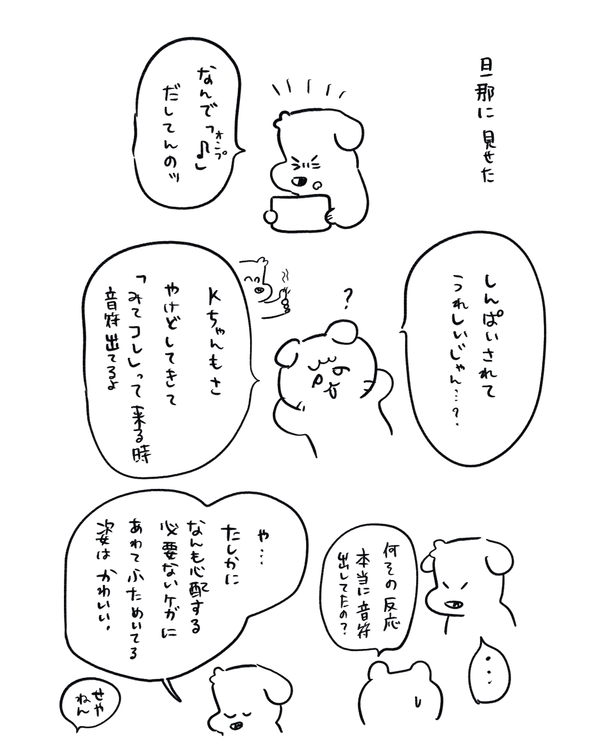 旦那に見せた
なんで「♪」
オンプ
だしてんのッ
しんぱいされて
うれしいじゃん…?
?
Kちゃんもさ
やけどしてきて
「みてコレ」って来る時
音符出てるよ
何その反応
本当に音符
出してたの?
・・・
や…
たしかに
なんも心配する
必要ないケガに
あわてふためいてる
姿はかわいい。
せや
ねん